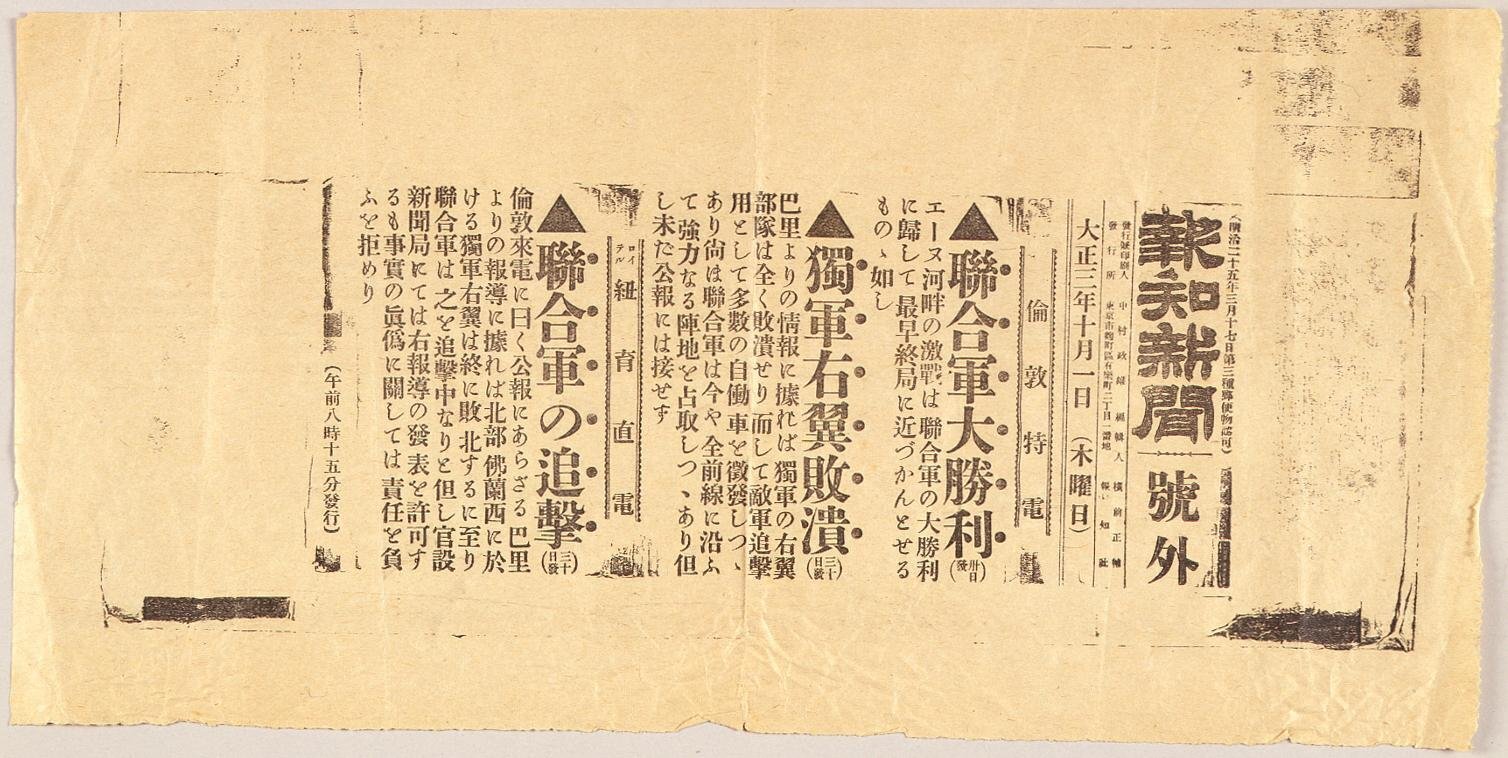 (明治二十五年三月十七日第三種郵便物認可)
報知新聞
號外
發行兼印刷人 中村政雄 編輯人 橫前正輔
發行所 東京市麴町區有樂町二丁目一番地 報知社
大正三年十月一日(木曜日)
倫敦特電
▲聯合軍大勝利(卅日發)
エーヌ河畔の激戰は聯合軍の大勝利
に歸して最早終局に近づかんとせる
ものゝ如し
▲獨軍右翼敗潰(三十日發)
巴里よりの情報に據れば獨軍の右翼
部隊は全く敗潰せり而して敵軍追擊
用として多數の自働車を徵發しつゝ
あり尙は聯合軍は今や全前線に沿ふ
て強力なる陣地を占取しつゝあり但
し未た公報には接せす
ロイテル 紐育直電
▲聯合軍の追擊(三十日發)
倫敦來電に曰く公報にあらざる巴里
よりの報導に據れば北部佛蘭西に於
ける獨軍右翼は終に敗北するに至り
聯合軍は之を追擊中なりと但し官設
新聞局にては右報導の發表を許可す
るも事實の眞僞に關しては責任を負
ふを拒めり
(午前八時十五分發行)